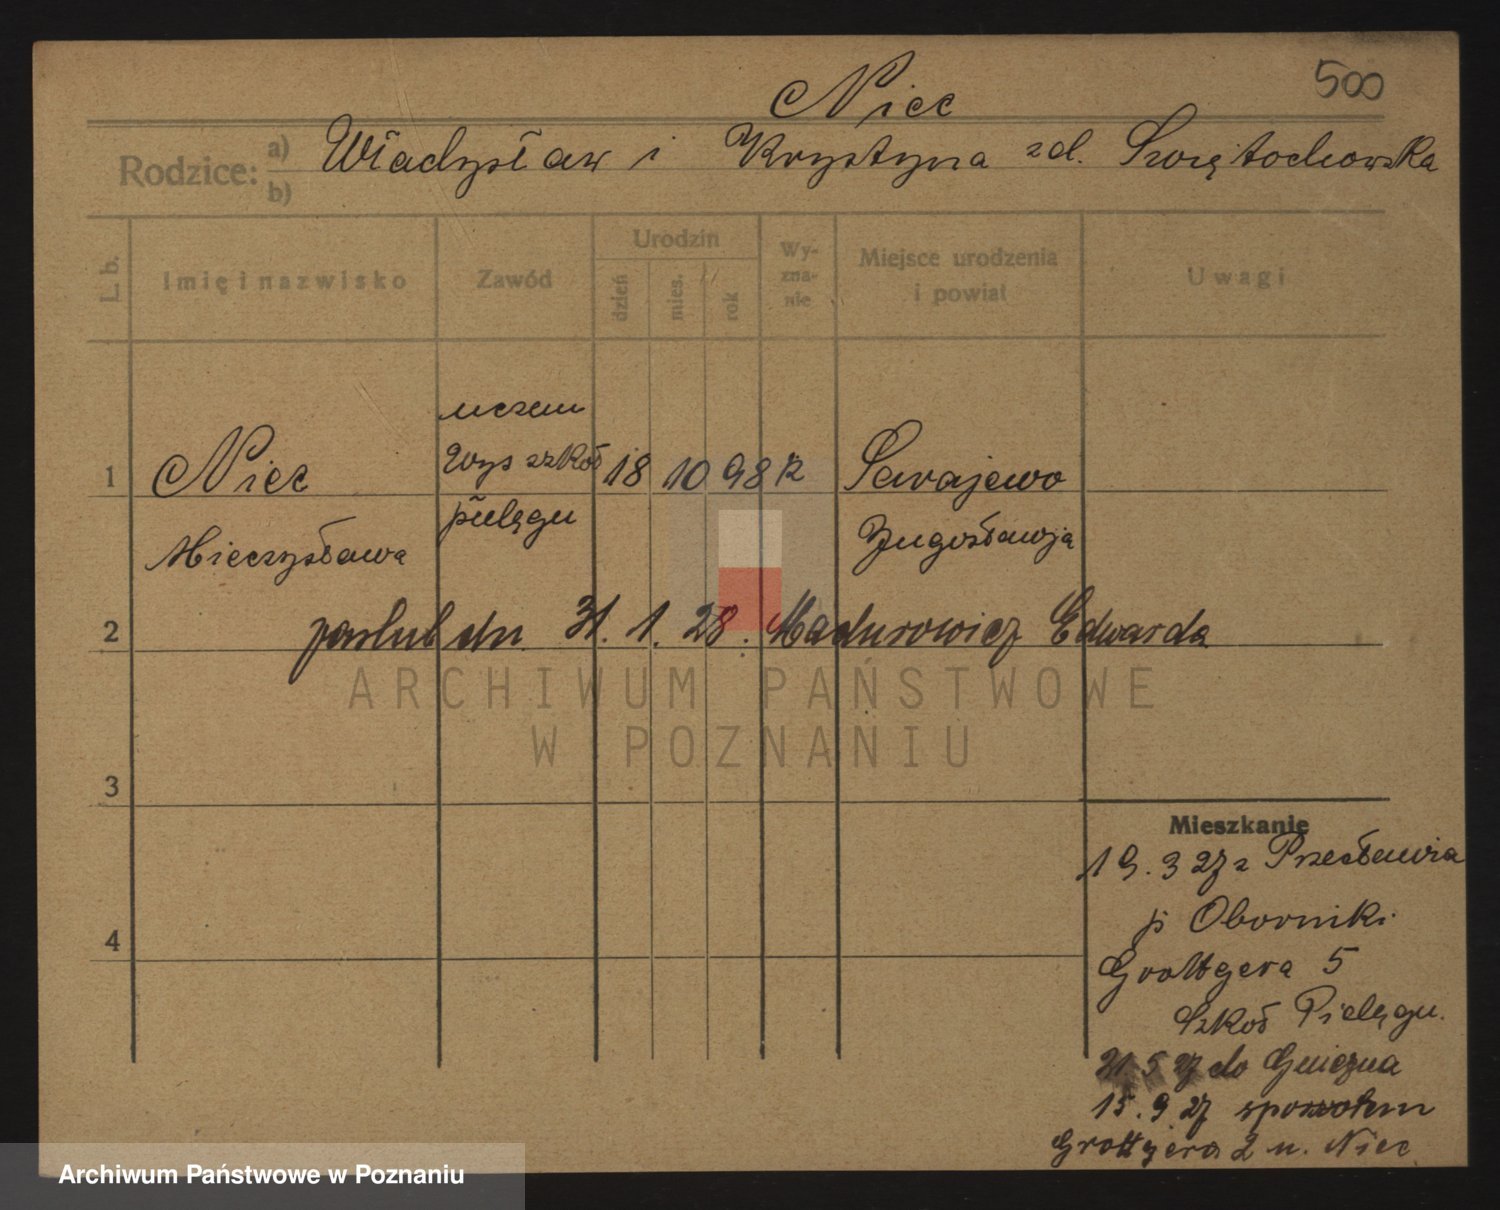 Niec
500
Rodzice: a) b) Władysław i Krystyna zd. Świętochowska
L. b.
Imię i nazwisko
Zawód
Urodzin
dzień
mies.
rok
Wy-
zna-
nie
Miejsce urodzenia
i powiat
Uwagi
uczen
1 Niec Wys szkoł 18 10 98 R Sarajewo
pielęgn
Mieczysława Jugosławja
2 poslub dn. 31. 1. 28. Madurowicz Edwarda
ARCHIWUM PAŃSTWOWE
W POZNANIU
3
Mieszkanie
19. 3 27 z Przecławia
p Oborniki
4
Grottgera 5
Szkoł Pielęgn.
31. 5 27 do Gniezna
15. 9 27 spowrotem
Grottgera 2 u. Niec
Archiwum Państwowe w Poznaniu